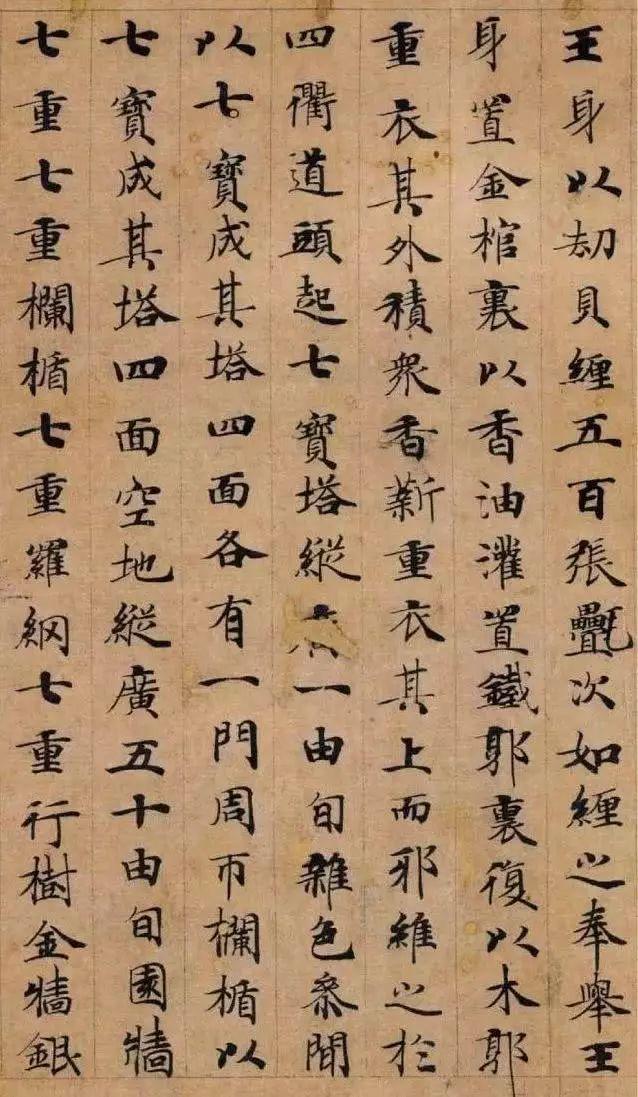 王身以劫貝纏五百張氎次如纏之奉舉王
身置金棺裏以香油灌置鐵郭裏復以木郭
重衣其外積衆香薪重衣其上而邪維之於
四衢道頭起七寶塔縱一由旬雜色參間
以七寶成其塔四面各有一門周帀欄楯以
七寶成其塔四面空地縱廣五十由旬園牆
七重七重欄楯七重羅網七重行樹金牆銀